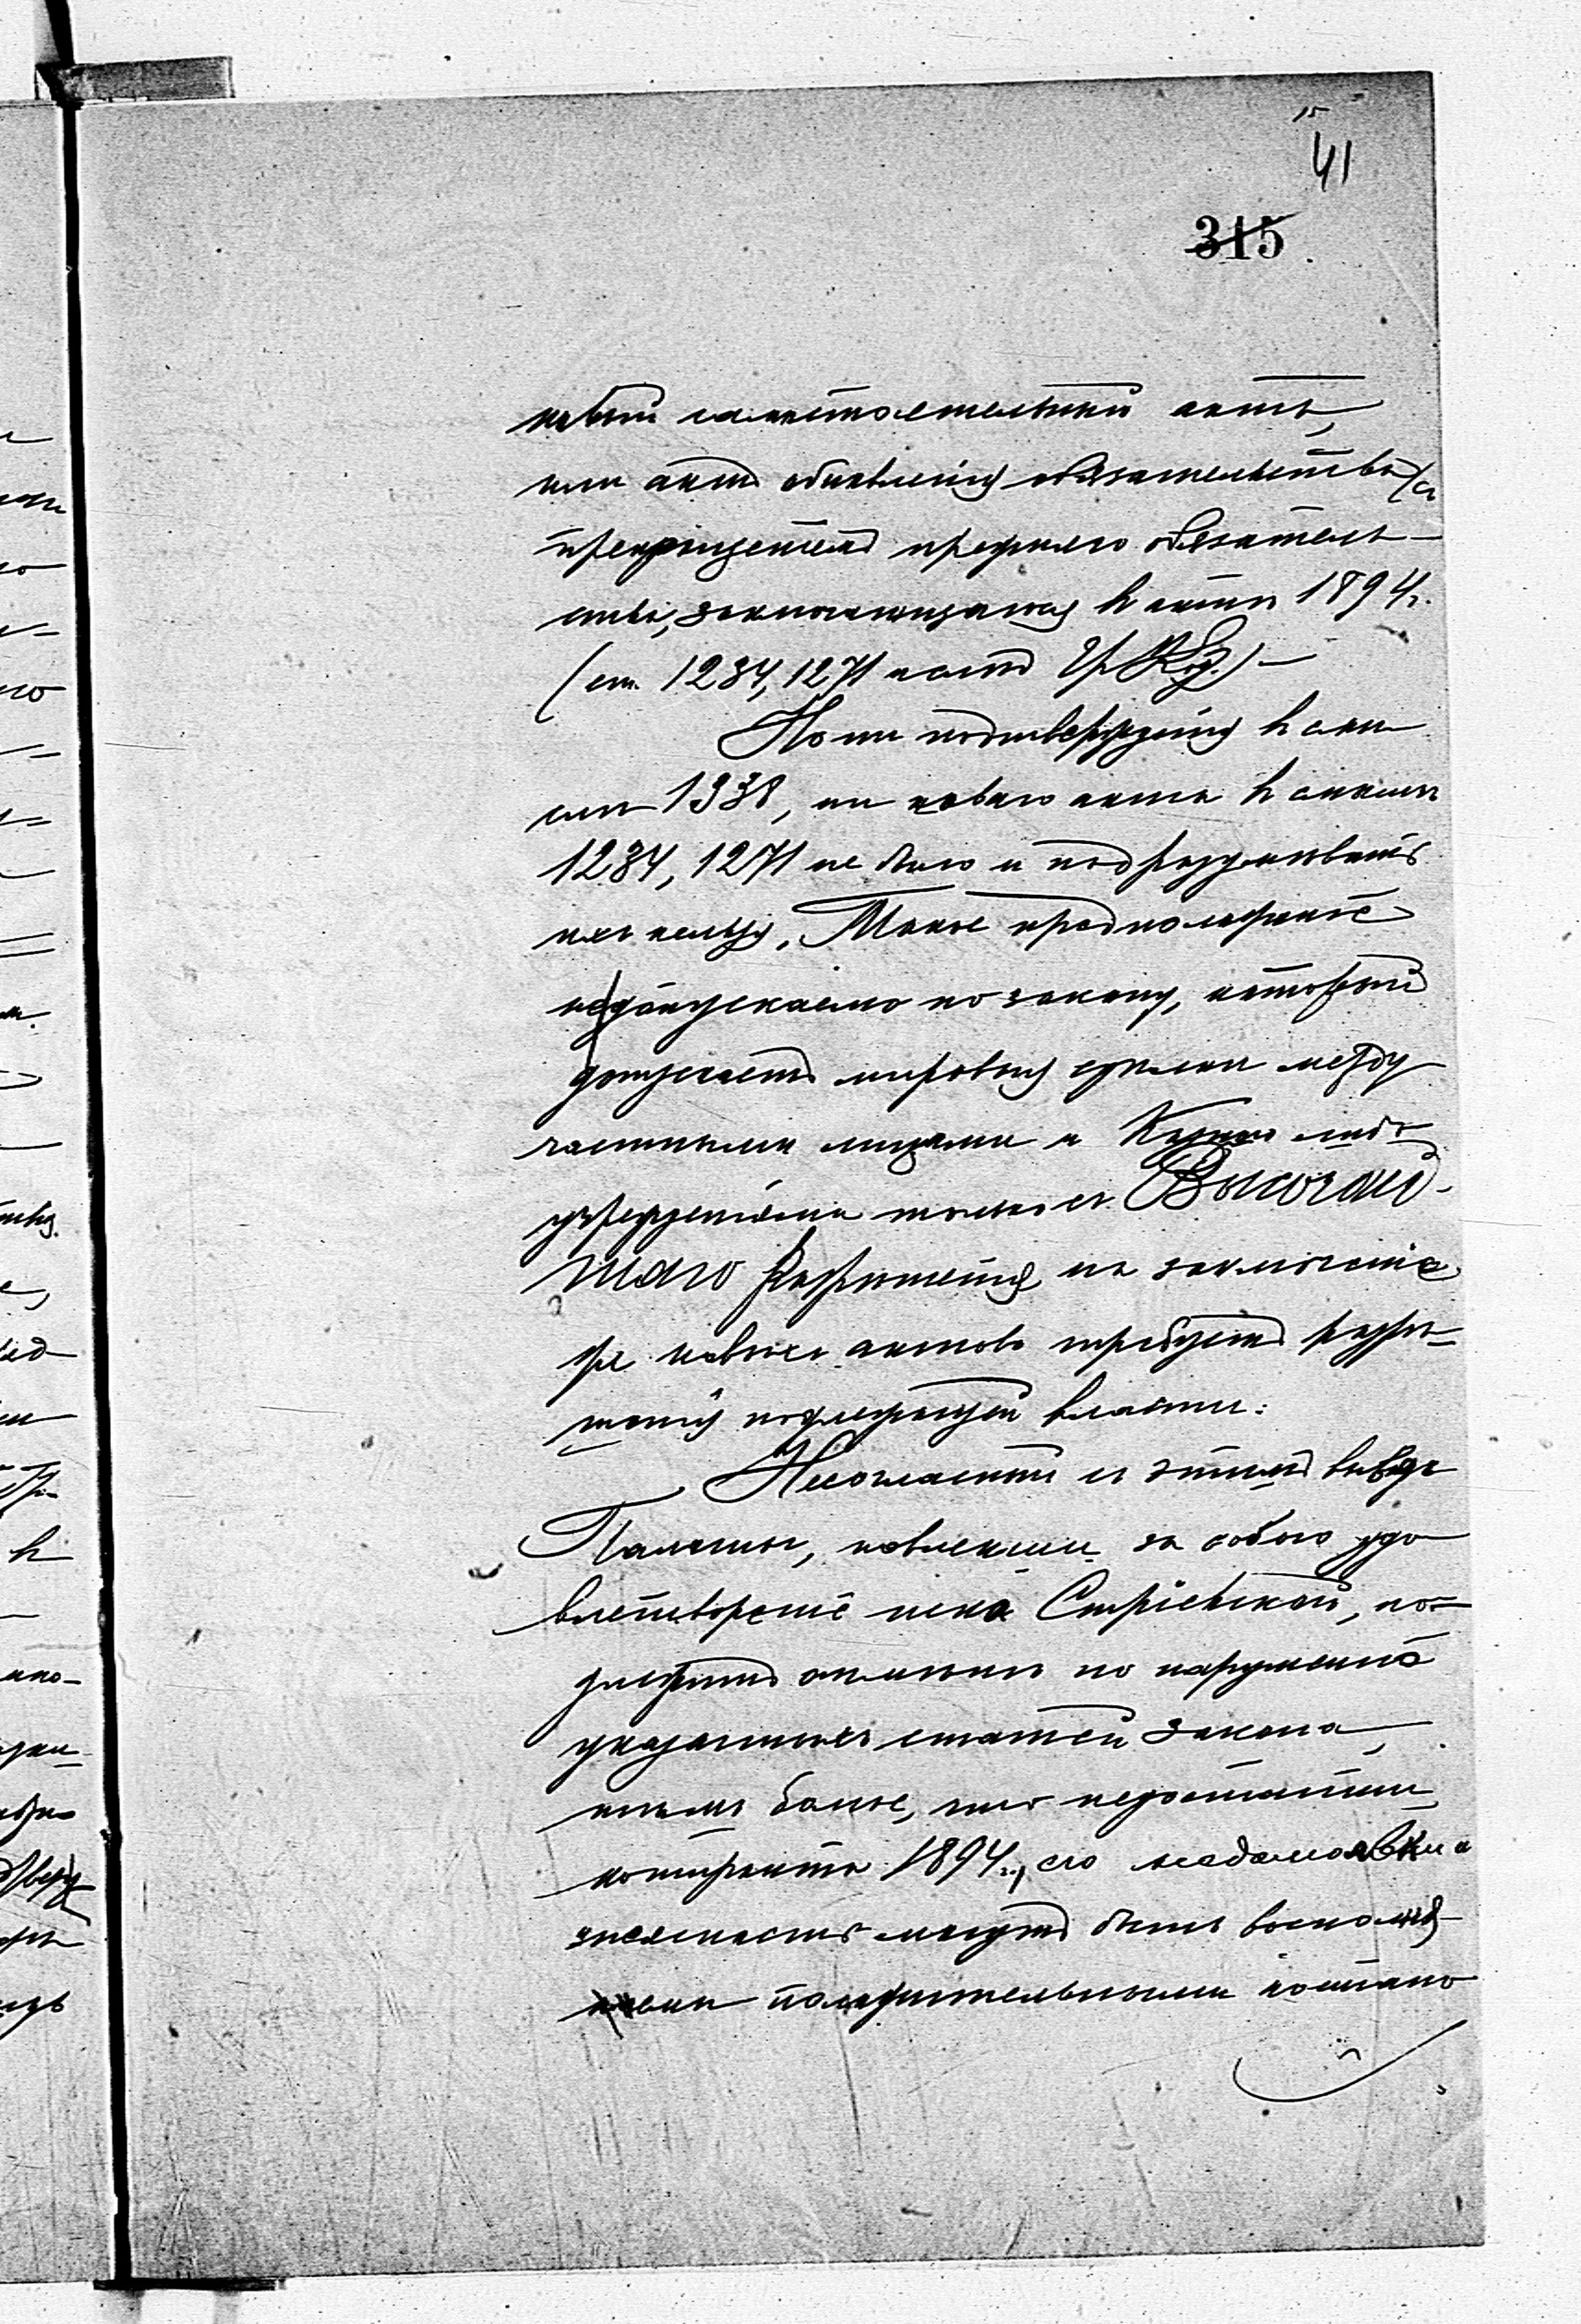 15
41
315
новый самостоятельный актъ,
или актъ обновленія обязательства /съ
прекращеніемъ прежняго обязатель-
ства, заключающагося въ актѣ 1894 г.
(ст. 1234, 1271 Гр. Код.) –
Но ни подтвержденія въ смы
слѣ 1338, ни новаго акта въ смыслѣ
1234, 1271 не было и подразумѣвать
ихъ нельзя. Такое предположеніе
недопускаемо по закону, который
допускаетъ мировыя сделки между
частными лицами и Казною либо
учрежденіями только съ Высочай-
шаго Разрѣшенія, на заключеніе
же новыхъ актовъ требуетъ разрѣ-
шенія подлежащей власти.
Несогласный съ этимъ выводъ
Палаты, повлекшій за собою удо
влетвореніе иска Стріевской, по-
длежитъ отмѣнѣ по нарушенію
указанныхъ статей закона,
тѣмъ болѣе, что недостатки
контракта 1894 г., его недомолвки и
неясность могутъ быть восполне
ны положительными постано